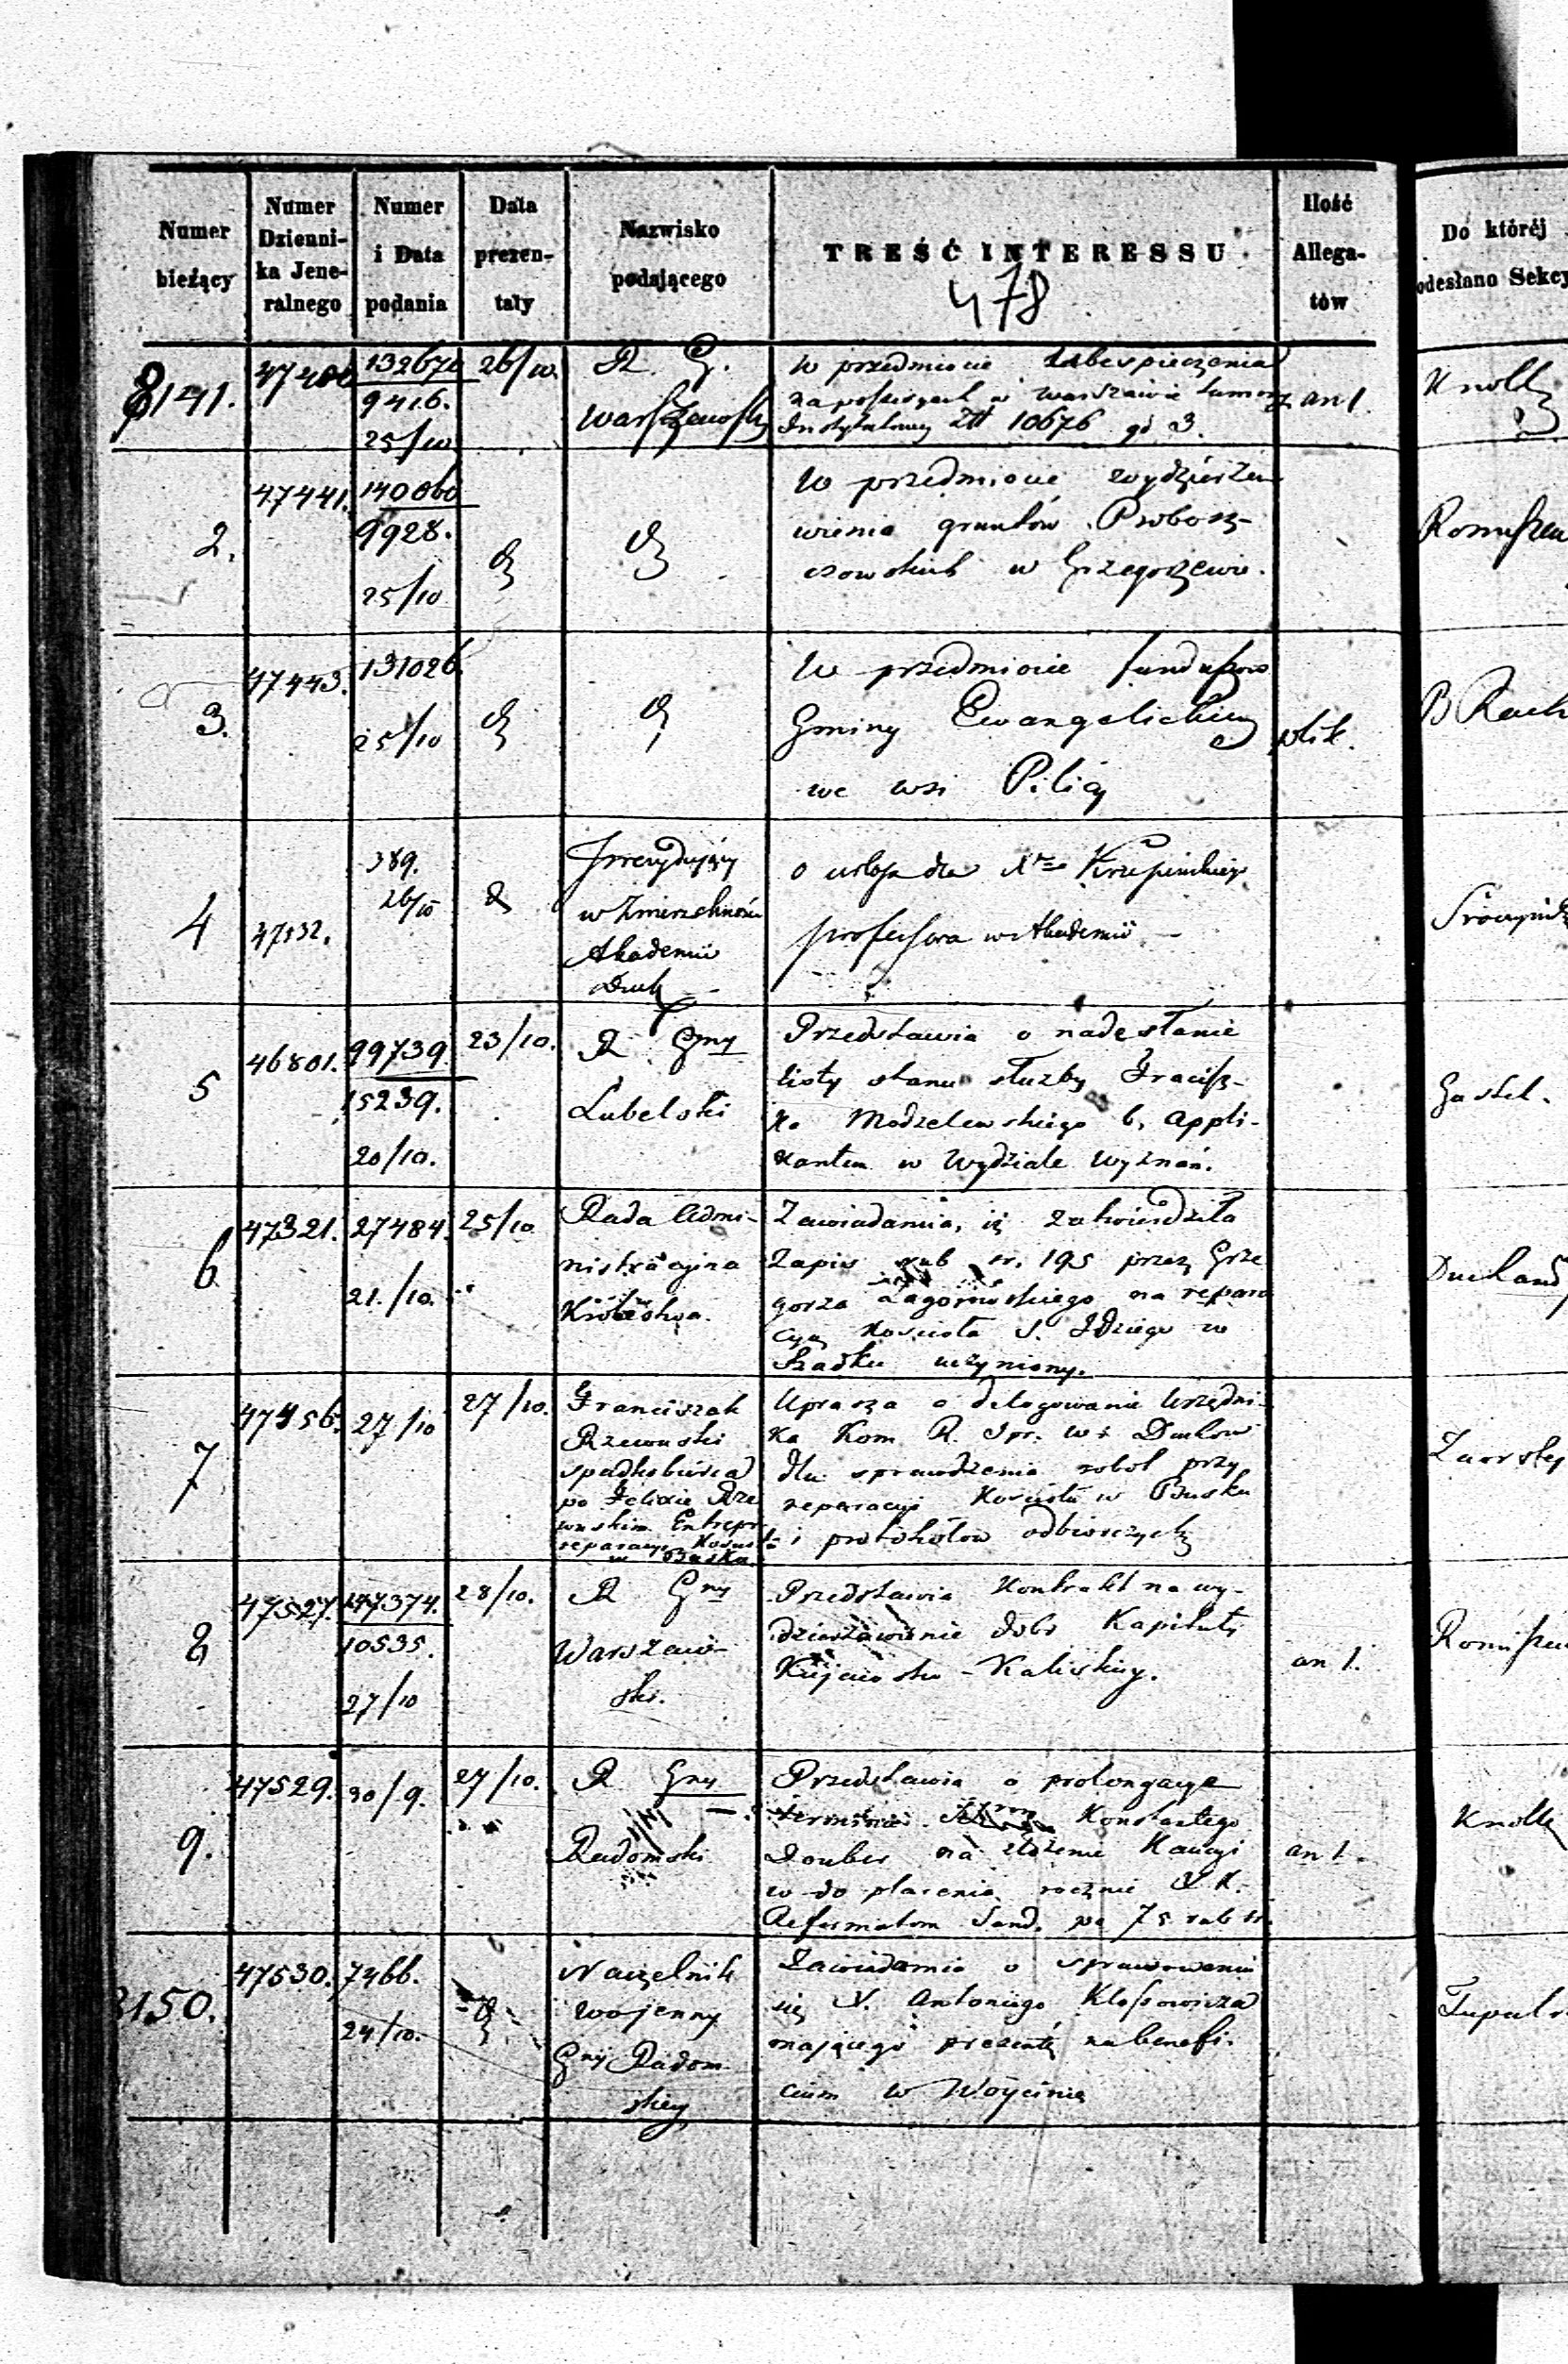 Numer
bieżący
Numer
Dzienni-
ka Jene-
ralnego
Numer
i Data
podania
Data
prezen-
taty
Nazwisko
podającego
TREŚĆ INTERESSU
478
Ilość
Allega-
tów
Do któréj
odesłano Sekcy
8141.
132670
9416.
25/10
26/10.
R. G.
Warszawski
W przedmiocie zabespieczenia
w Warszawie
Złł 10676 gr 3.
an 1.
Knoll
2.
47441.
140060
9928.
25/10
W przedmiocie wydzierża-
wienia gruntów Probosz-
czowskich w Grzegorzewie.
3.
47443.
131026
25/10
W przedmiocie funduszów
Gminy Ewangelickiej
we wsi Pilicy
plik.
4
47132.
389.
26/10
w Zwierzchności
Akademii
Duch
o urlop dla Krupińskiego
professora w Akademii
5
46801.
99739
15239.
20/10.
23/10.
R Gny
Lubelski
Przedstawia o nadesłanie
listy stanu służby Francisz-
ka Modzelewskiego b. appli-
kanta w Wydziale Wyznań.
Gastel.
6
47321.
27484.
21./10.
25/10
Rada Admi-
nistracyjna
Królestwa.
Zawiadamia, iż zatwierdziła
Zapis rub sr. 195 przez Grze
gorza Zagorowskiego na repara
cyą Kościoła S. Idziego w
Szadku uczyniony.
7
47456.
27/10
27/10.
Franciszek
Rzewuski
spadkobierca
po Felixie Rze
wuskim Entrepr
reparacyi Kościoła
w Busku
Uprasza o delegowanie Urzędni-
ka Kom R. Spr. W i Duchow
dla sprawdzenia robot przy
reparacyi Kościoła w Busku
i protokołów odbiorczych
8
47527.
147374.
10535.
27/10
28/10.
R Gny
Warszaw-
ski.
Przedstawia Kontrakt na wy-
dzierżawienie dóbr Kapituły
Kujawsko-Kaliskiej.
an 1.
9.
47529.
30/9.
27/10.
R Gny
Radomski
Przedstawia o prolongacye
terminu Konstantego
Douber na złożenie Kaucyi
w do płacenia rocznie X X.
Reformatom Sand. po 75 rub sr.
an 1.
Knoll
8150.
47530.
7466.
24/10.
Naczelnik
wojenny
Gny Radom-
skiey
Zawiadamia o sprawowaniu
się X. Antoniego Kłossowicza
mającego prezentę na benefi-
cium w Wóycinie